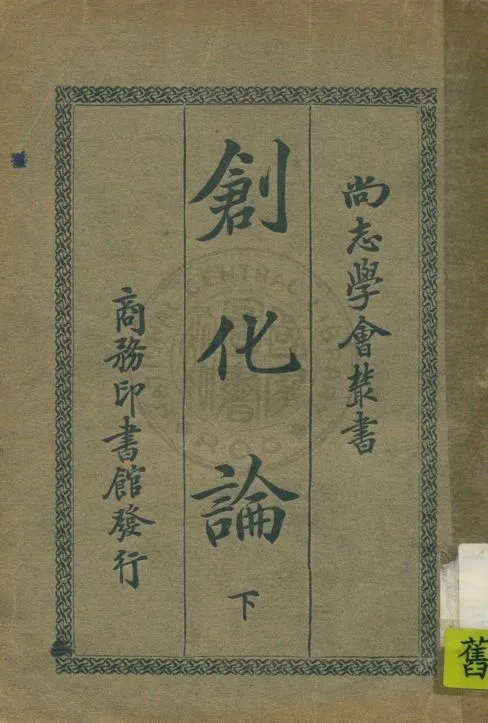 尚志學會叢書
創化論 下
商務印書館發行
舊